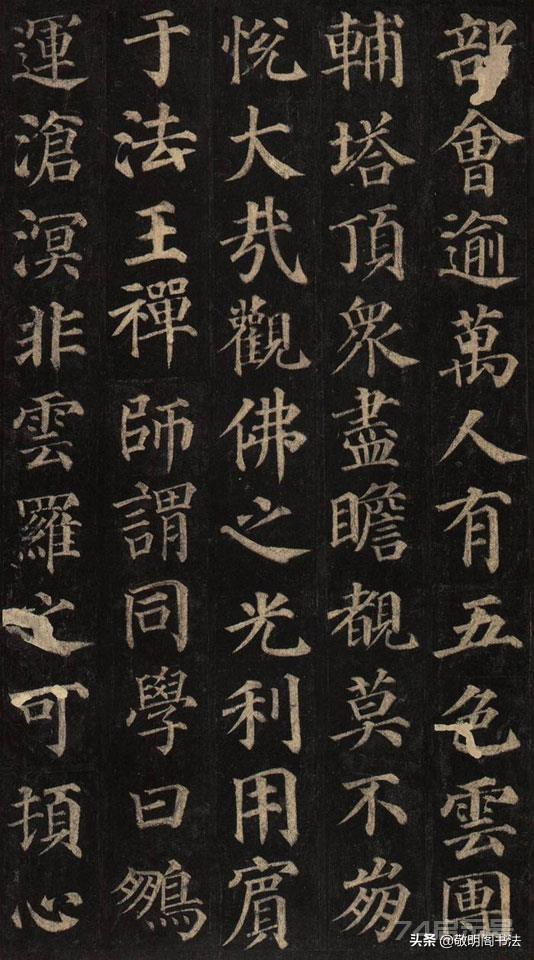 部會逾萬人有五色雲團
輔塔頂眾盡瞻覩莫不崩
悅大哉觀佛之光利用賓
于法王禪師謂同學曰鵬
運滄溟非雲羅之可頓心
头条 @敬明阁书法